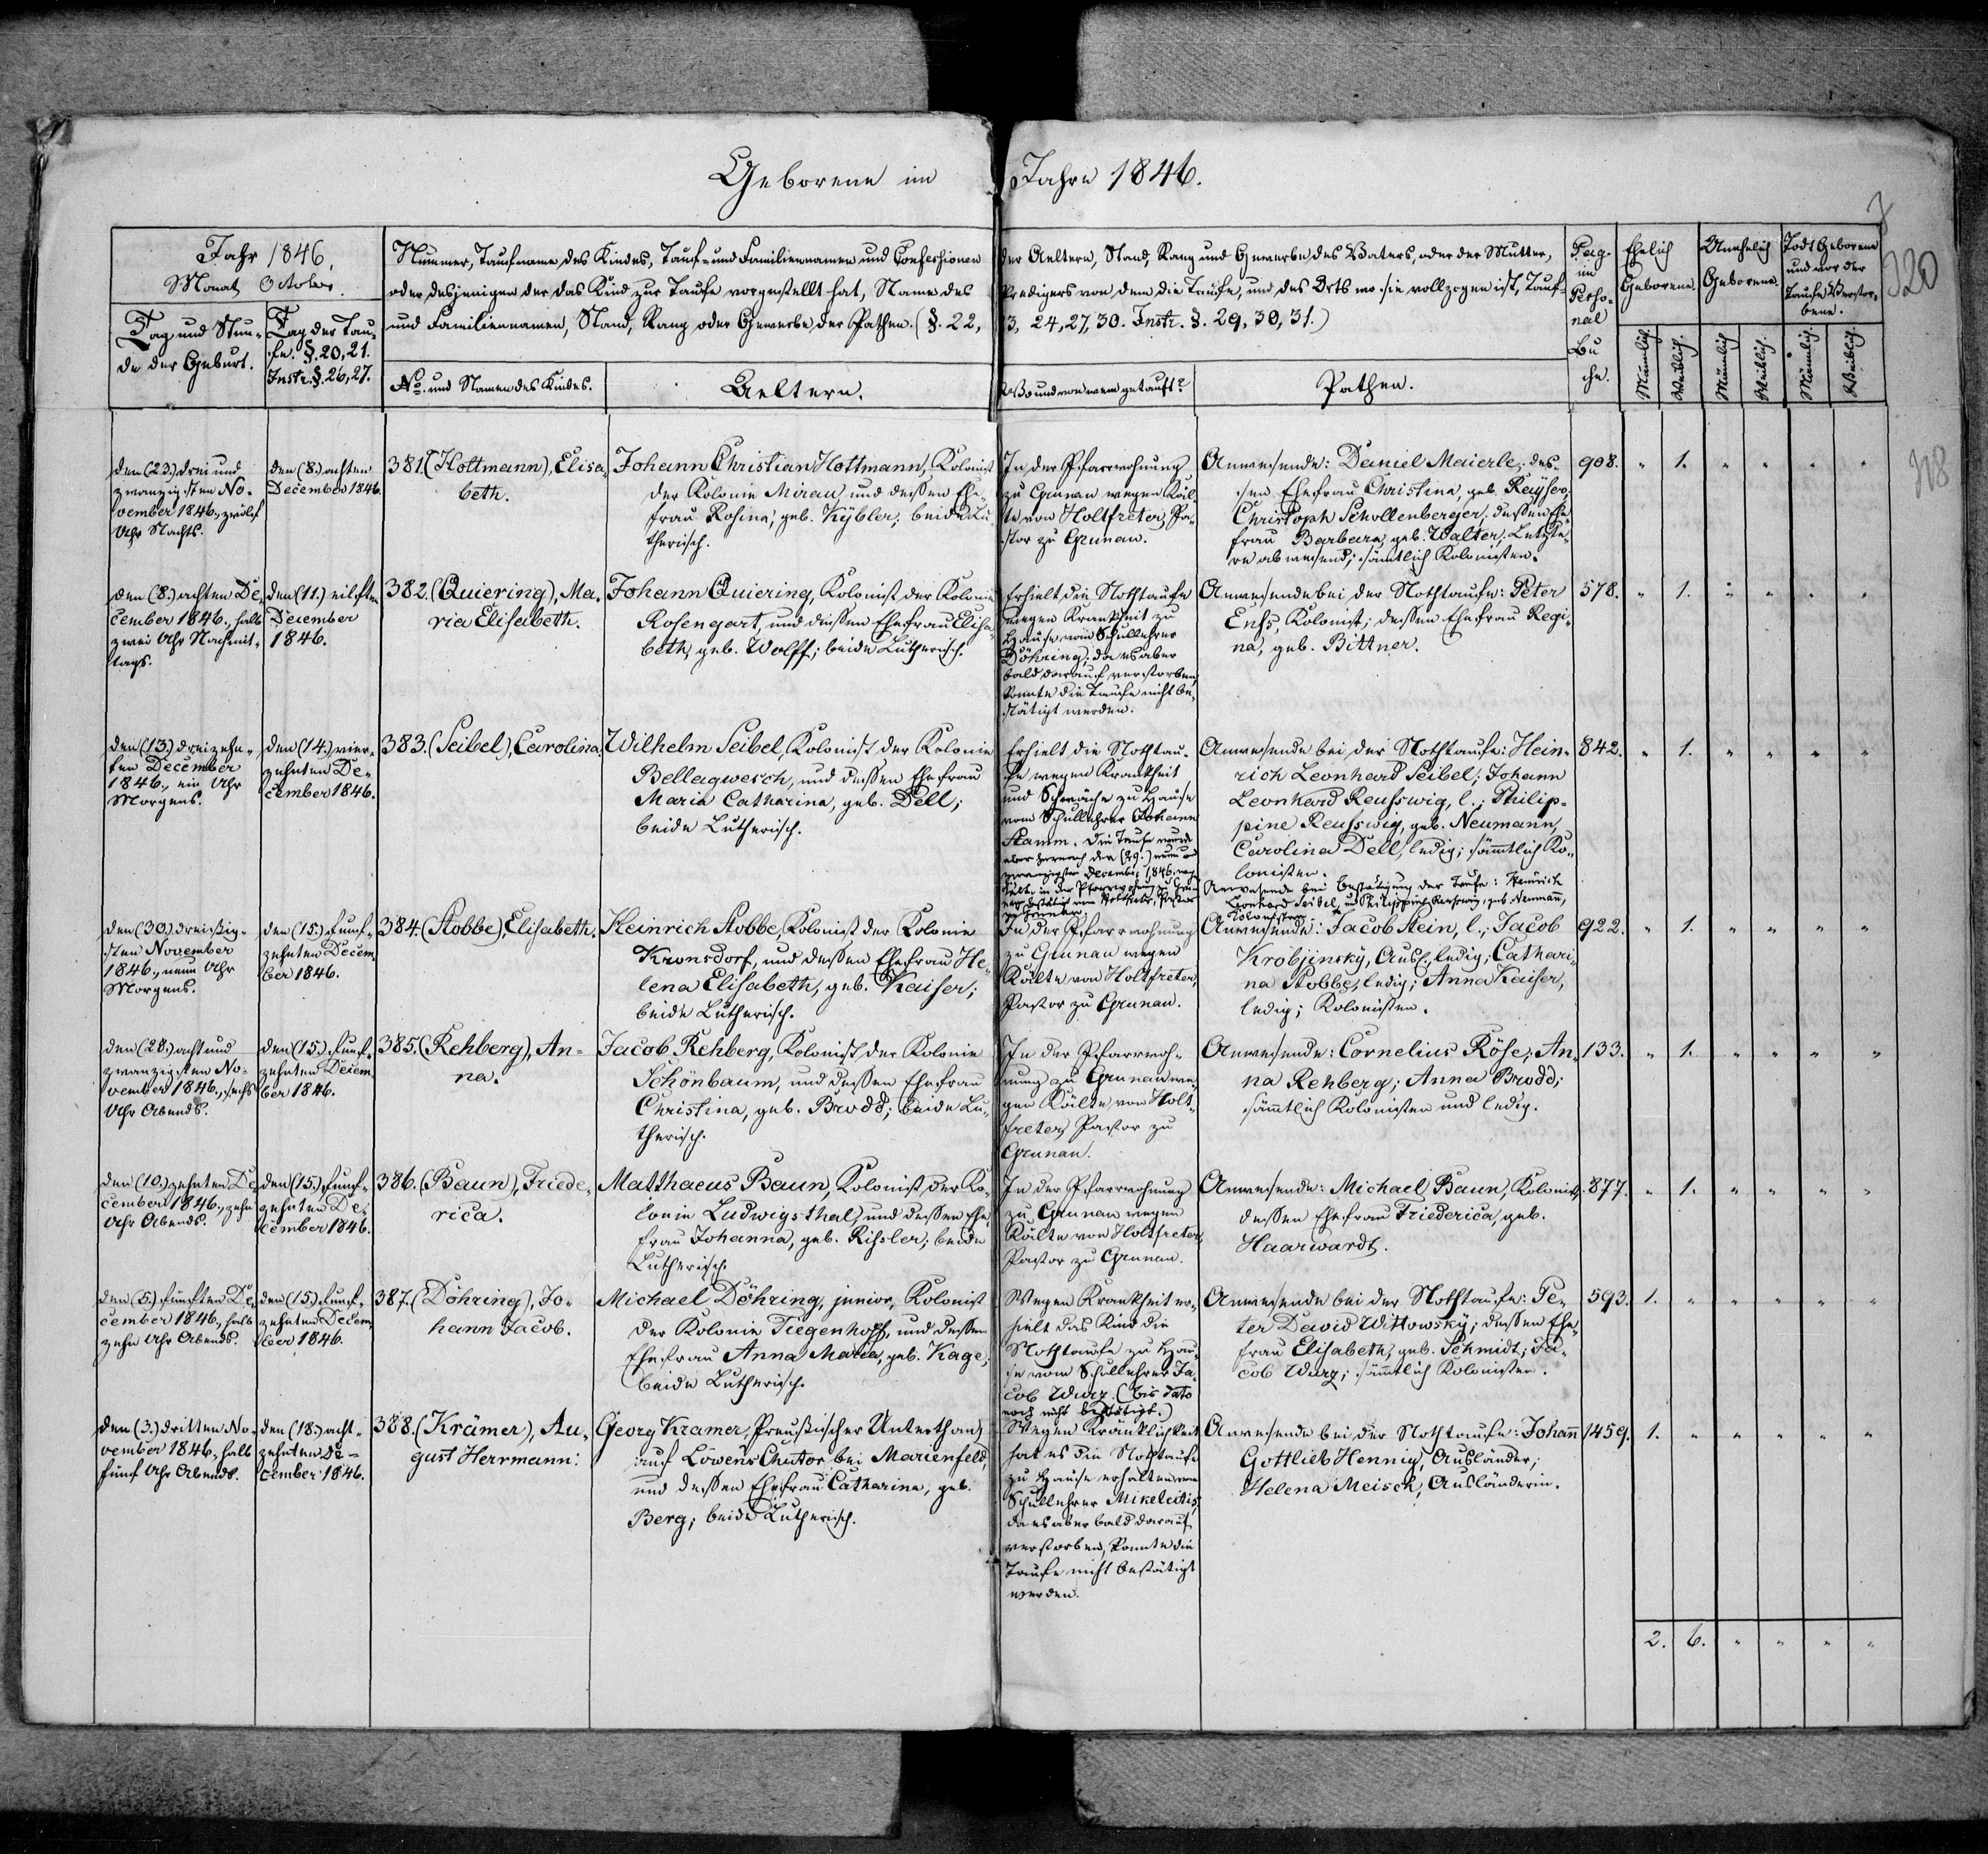 Geborene im Jahre 1846.
320
118
Jahr 1846.
Monat October.
Tag und Stun-
de der Geburt.
Tag der Tau-
fe. §. 20, 21.
Instr. §. 26, 27.
Nummer, Taufname des Kindes, Tauf- und Familiennamen und Confessionen der Aeltern, Stand, Rang und Gewerbe des Vaters, oder der Mutter,
oder desjenigen der das Kind zur Taufe vorgestellt hat, Name des Predigers von dem die Taufe, und des Orts wo sie vollzogen ist, Tauf-
und Familiennamen, Stand, Rang oder Gewerbe der Pathen. (§. 22, 23, 24, 27, 30. Instr. §. 29, 30, 31.)
No. und Namen des Kindes.
Aeltern.
Wo und von wem getauft?
Pathen.
Pag.
im
Perso-
nal
Bu
che.
Ehelich
Geborene.
Unehelich
Geborene.
Todt Geborene
und vor der
Taufe Verstor-
bene.
Männlich.
Weiblich.
Männlich.
Weiblich.
Männlich.
Weiblich.
den (23.) drei und
zwanzigsten No-
vember 1846., zwölf
Uhr Nachts.
den (8.) achten
December 1846.
381. (Hottmann), Elisa-
beth.
Johann Christian Hottmann, Kolonist
der Kolonie Mirau, und dessen Ehe-
frau Rosina, geb. Kÿbler, beide Lu-
therisch.
In der Pfarrwohnung
zu Grunau wegen Käl-
te von Holtfreter, Pa-
stor zu Grunau.
Anwesende: Daniel Maierle, des-
sen Ehefrau Christina, geb. Kayser,
Christoph Schollenberger, dessen Ehe-
frau Barbara, geb. Walter, Letzte-
re abwesend; sämtlich Kolonisten.
908. " 1. " " " "
den (8.) achten De-
cember 1846., halb
zwei Uhr Nachmit-
tags.
den (11.) eilften
December
1846.
382. (Quiering), Ma-
ria Elisabeth.
Johann Quiering, Kolonist der Kolonie
Rosengart, und dessen Ehefrau Elisa-
beth, geb. Wolff; beide Lutherisch.
Erhielt die Nothtaufe
wegen Krankheit zu
Hause vom Schullehrer
Döhring; da es aber
bald darauf verstorben,
konnte die Taufe nicht be-
stätigt werden.
Anwesende bei der Nothtaufe: Peter
Enss, Kolonist; dessen Ehefrau Regi-
na, geb. Bittner.
578. " 1. " " " "
den (13.) dreizehn-
ten December
1846., ein Uhr
Morgens.
den (14.) vier-
zehnten De-
cember 1846.
383. (Seibel), Carolina.
Wilhelm Seibel, Kolonist der Kolonie
Bellagwesch, und dessen Ehefrau
Maria Catharina, geb. Dell;
beide Lutherisch.
Erhielt die Nothtau-
fe wegen Krankheit
und Schwäche zu Hause
vom Schullehrer Johann
Stamm. Die Taufe wurde
aber hernach den (29.) neun und
zwanzigsten December 1846. weg.
Kälte in der Pfarrwohnung zu Gru-
nau bestätigt von Holtfreter, Pastor
zu Grunau.
Anwesende bei der Nothtaufe: Hein-
rich Leonhard Seibel; Johann
Leonhard Reusswig, l.; Philip-
pine Reusswig, geb. Neumann,
Carolina Dell, ledig; sämmtlich Ko-
lonisten.
Anwesende bei Bestätigung der Taufe: Heinrich
Leonhard Seibel, und Philippine Reusswig, geb. Neumann,
Kolonisten.
842. " 1. " " " "
den (30.) dreißig-
sten November
1846., neun Uhr
Morgens.
den (15.) fünf-
zehnten Decem-
ber 1846.
384. (Stobbe), Elisabeth.
Heinrich Stobbe, Kolonist der Kolonie
Kronsdorf, und dessen Ehefrau He-
lena Elisabeth, geb. Kaiser;
beide Lutherisch.
In der Pfarrwohnung
zu Grunau wegen
Kälte von Holtfreter,
Pastor zu Grunau.
Anwesende: Jacob Stein, l.; Jacob
Krobjinsky, Ausl., ledig; Cathari-
na Stobbe, ledig; Anna Kaiser,
ledig; Kolonisten.
922. " 1. " " " "
den (28.) acht und
zwanzigsten No-
vember 1846., sechs
Uhr Abends.
den (15.) fünf-
zehnten Decem-
ber 1846.
385. (Rehberg), An-
na.
Jacob Rehberg, Kolonist der Kolonie
Schönbaum, und dessen Ehefrau
Christina, geb. Brodd; beide Lu-
therisch.
In der Pfarrwoh-
nung zu Grunau we-
gen Kälte von Holt-
freter, Pastor zu
Grunau.
Anwesende: Cornelius Röse; An-
na Rehberg; Anna Brodd;
sämmtlich Kolonisten und ledig.
133. " 1. " " " "
den (10.) zehnten De-
cember 1846., zehn
Uhr Abends.
den (15.) fünf-
zehnten De-
cember 1846.
386. (Baun), Friede-
rica.
Matthaeus Baun, Kolonist der Ko-
lonie Ludwigsthal, und dessen Ehe-
frau Johanna, geb. Rissler; beide
Lutherisch.
In der Pfarrwohnung
zu Grunau wegen
Kälte von Holtfreter,
Pastor zu Grunau.
Anwesende: Michael Baun, Kolonist,
dessen Ehefrau Friederica, geb.
Haarwardt.
877. " 1. " " " "
den (5.) fünften De-
cember 1846., halb
zehn Uhr Abends.
den (15.) fünf-
zehnten Decem-
ber 1846.
387. (Döhring), Jo-
hann Jacob.
Michael Döhring, junior, Kolonist
der Kolonie Tiegenhoff, und dessen
Ehefrau Anna Maria, geb. Kage;
beide Lutherisch.
Wegen Krankheit er-
hielt das Kind die
Nothtaufe zu Hau-
se vom Schullehrer Ja-
cob Wurz. (bis dato
noch nicht bestätigt.)
Anwesende bei der Nothtaufe: Pe-
ter David Wittowsky; dessen Ehe-
frau Elisabeth, geb. Schmidt; Ja-
cob Wurz; sämmtlich Kolonisten.
593. 1. " " " " "
den (3.) dritten No-
vember 1846., halb
fünf Uhr Abends.
den (18.) acht-
zehnten De-
cember 1846.
388. (Krämer), Au-
gust Herrmann.
Georg Kramer, Preußischer Unterthan,
auf Löwens Chutor bei Marienfeld,
und dessen Ehefrau Catharina, geb.
Berg; beide Lutherisch.
Wegen Kränklichkeit
hat es die Nothtaufe
zu Hause erhalten vom
Schullehrer Mikeleitis,
da es aber bald darauf
verstorben, konnte die
Taufe nicht bestätigt
werden.
Anwesende bei der Nothtaufe: Johann
Gottlieb Hennig, Ausländer;
Helena Meisch, Ausländerin.
1459. 1. " " " " "
2. 6. " " " "